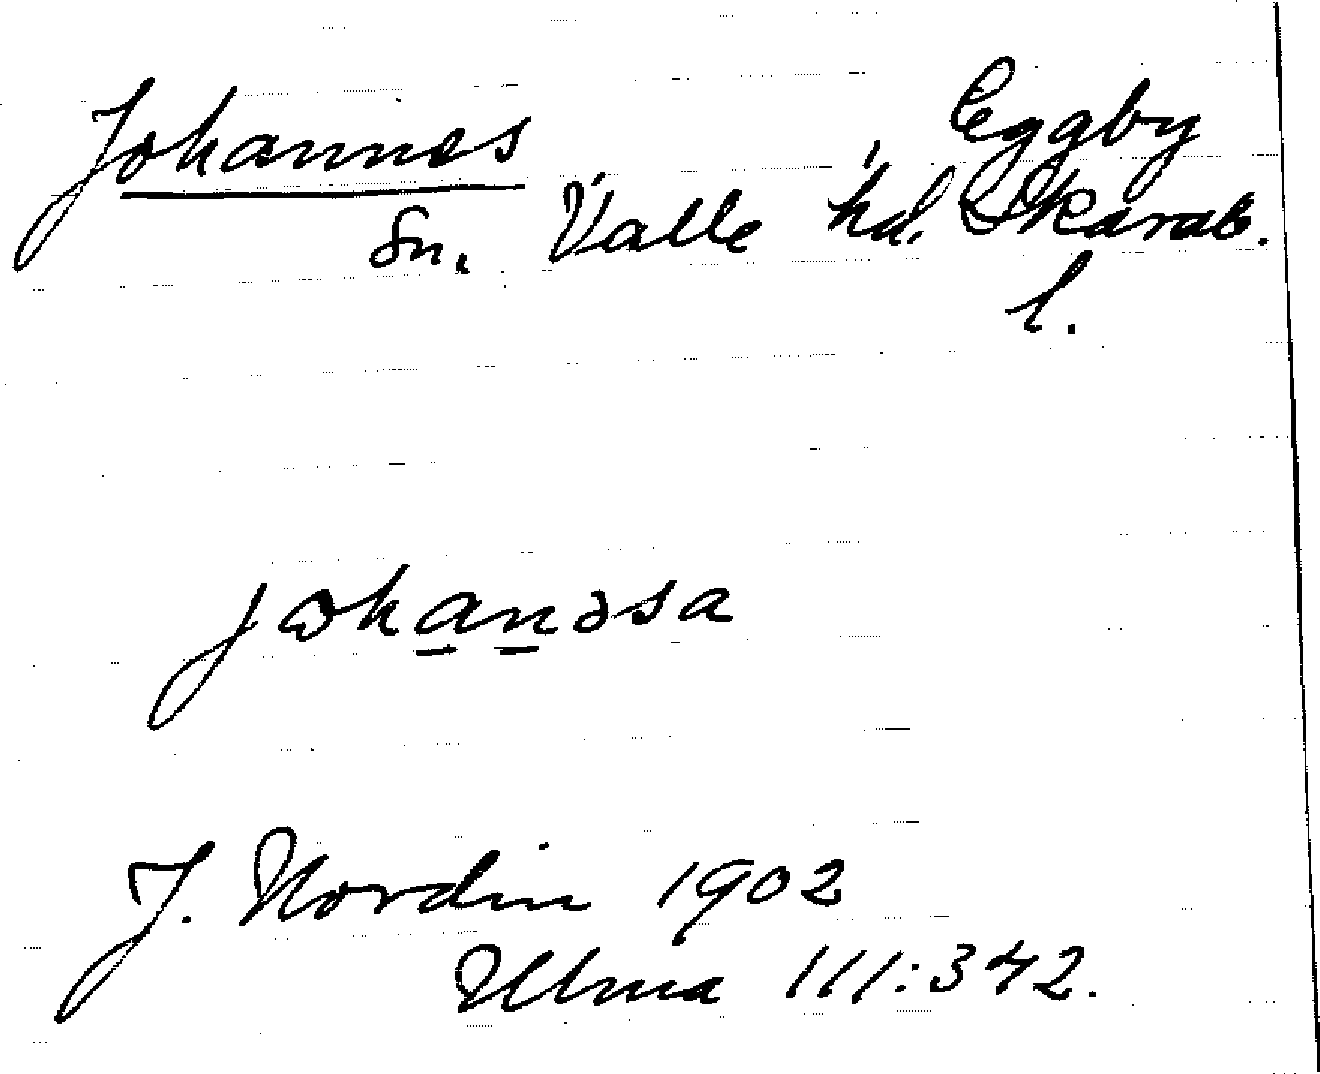 Johannes Eggby
sn. Valle hd. Skarab.
l.
johanəsa
J. Nordin 1902
Ulma 111:342.